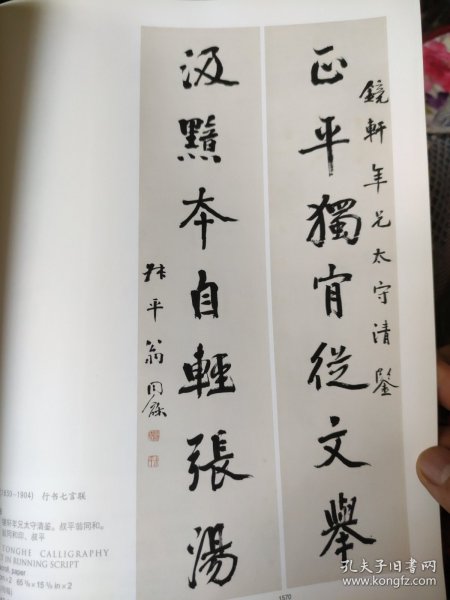 鏡軒年兄太守清鑒
正平獨肯從文舉
汲黯本自輕張湯
叔平翁同龢
(1830-1904) 行书七言联
镜轩年兄太守清鉴。叔平翁同和。
同和印、叔平
TONGHE CALLIGRAPHY
IN RUNNING SCRIPT
paper
×2 65⅞×15⅝in×2
1570
孔夫子旧书网